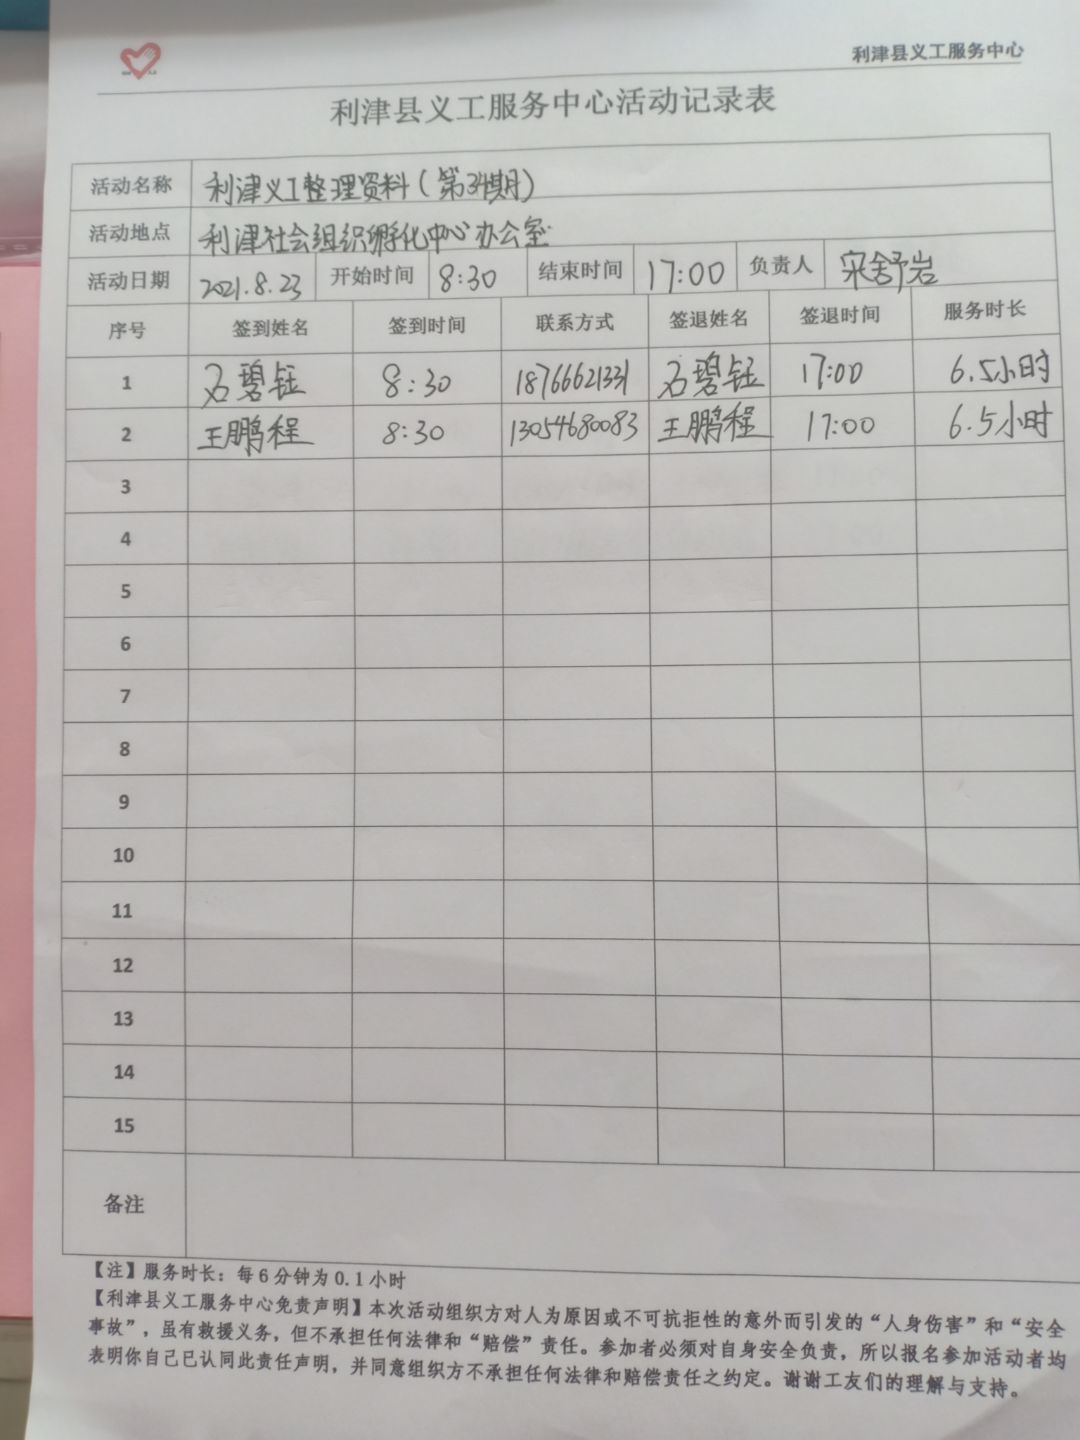 利津县义工服务中心
利津县义工服务中心活动记录表
活动名称 利津义工整理资料（第34期）
活动地点 利津社会组织孵化中心办公室
活动日期 2021.8.23 开始时间 8:30 结束时间 17:00 负责人 宋舒岩
序号 签到姓名 签到时间 联系方式 签退姓名 签退时间 服务时长
1 石碧钰 8:30 18766621331 石碧钰 17:00 6.5小时
2 王鹏程 8:30 13054680083 王鹏程 17:00 6.5小时
3
4
5
6
7
8
9
10
11
12
13
14
15
备注
【注】服务时长：每6分钟为0.1小时
【利津县义工服务中心免责声明】本次活动组织方对人为原因或不可抗拒性的意外而引发的“人身伤害”和“安全
事故”，虽有救援义务，但不承担任何法律和“赔偿”责任。参加者必须对自身安全负责，所以报名参加活动者均
表明你自己已认同此责任声明，并同意组织方不承担任何法律和赔偿责任之约定。谢谢工友们的理解与支持。